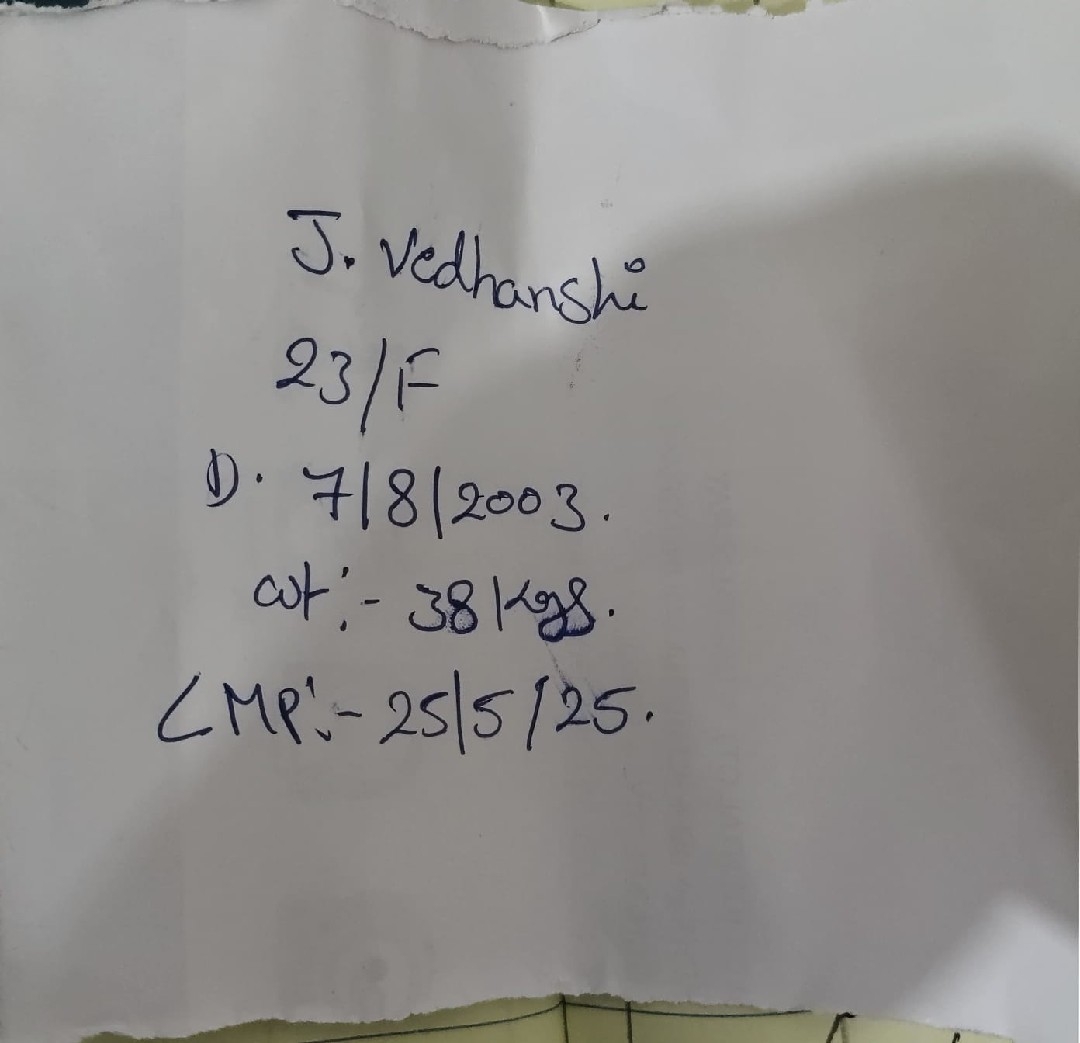 J. Vedhanshi
23/F
D. 7/8/2003.
wt:- 38 Kgs.
LMP:- 25/5/25.